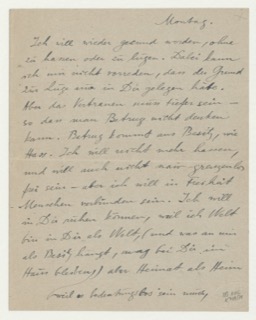 Montag.
Ich will wieder gesund werden, ohne
zu hassen oder zu lügen. Dabei kann
ich mir nicht vorreden, dass der Grund
zur Lüge etwa in Dir gelegen hätte.
Aber das Vertrauen muss tiefer sein —
so dass man Betrug nicht denken
kann. Betrug kommt aus Besitz, wie
Hass. Ich will nicht mehr hassen,
und will auch nicht
frei sein — aber ich will in Freiheit
Menschen verbunden sein. Ich will
in Dir ruhen können, weil ich Welt
bin in Dir als Welt, (und was an mir
als Besitz hängt, mag bei Dir im
Haus bleiben,) aber Heimat als Heim
will bedeutungslos sein